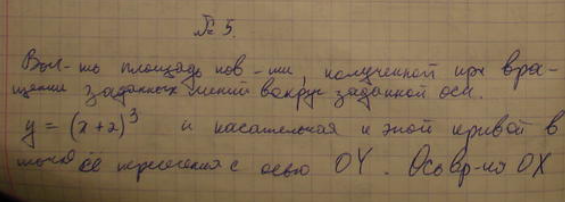 № 5.
Выч-ть площадь пов-ти, полученной при вра-
щении заданных линий вокруг заданной оси.
y = (x+2)³ и касательная к этой кривой в
точке её пересечения с осью OY. Ось вр-ия OX